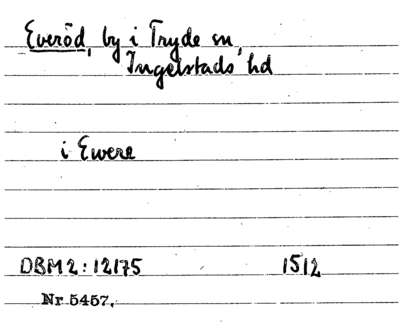 Everöd, by i Tryde sn,
Ingelstads hd
i Ewere
DBM 2:12175 1512
Nr 5457.